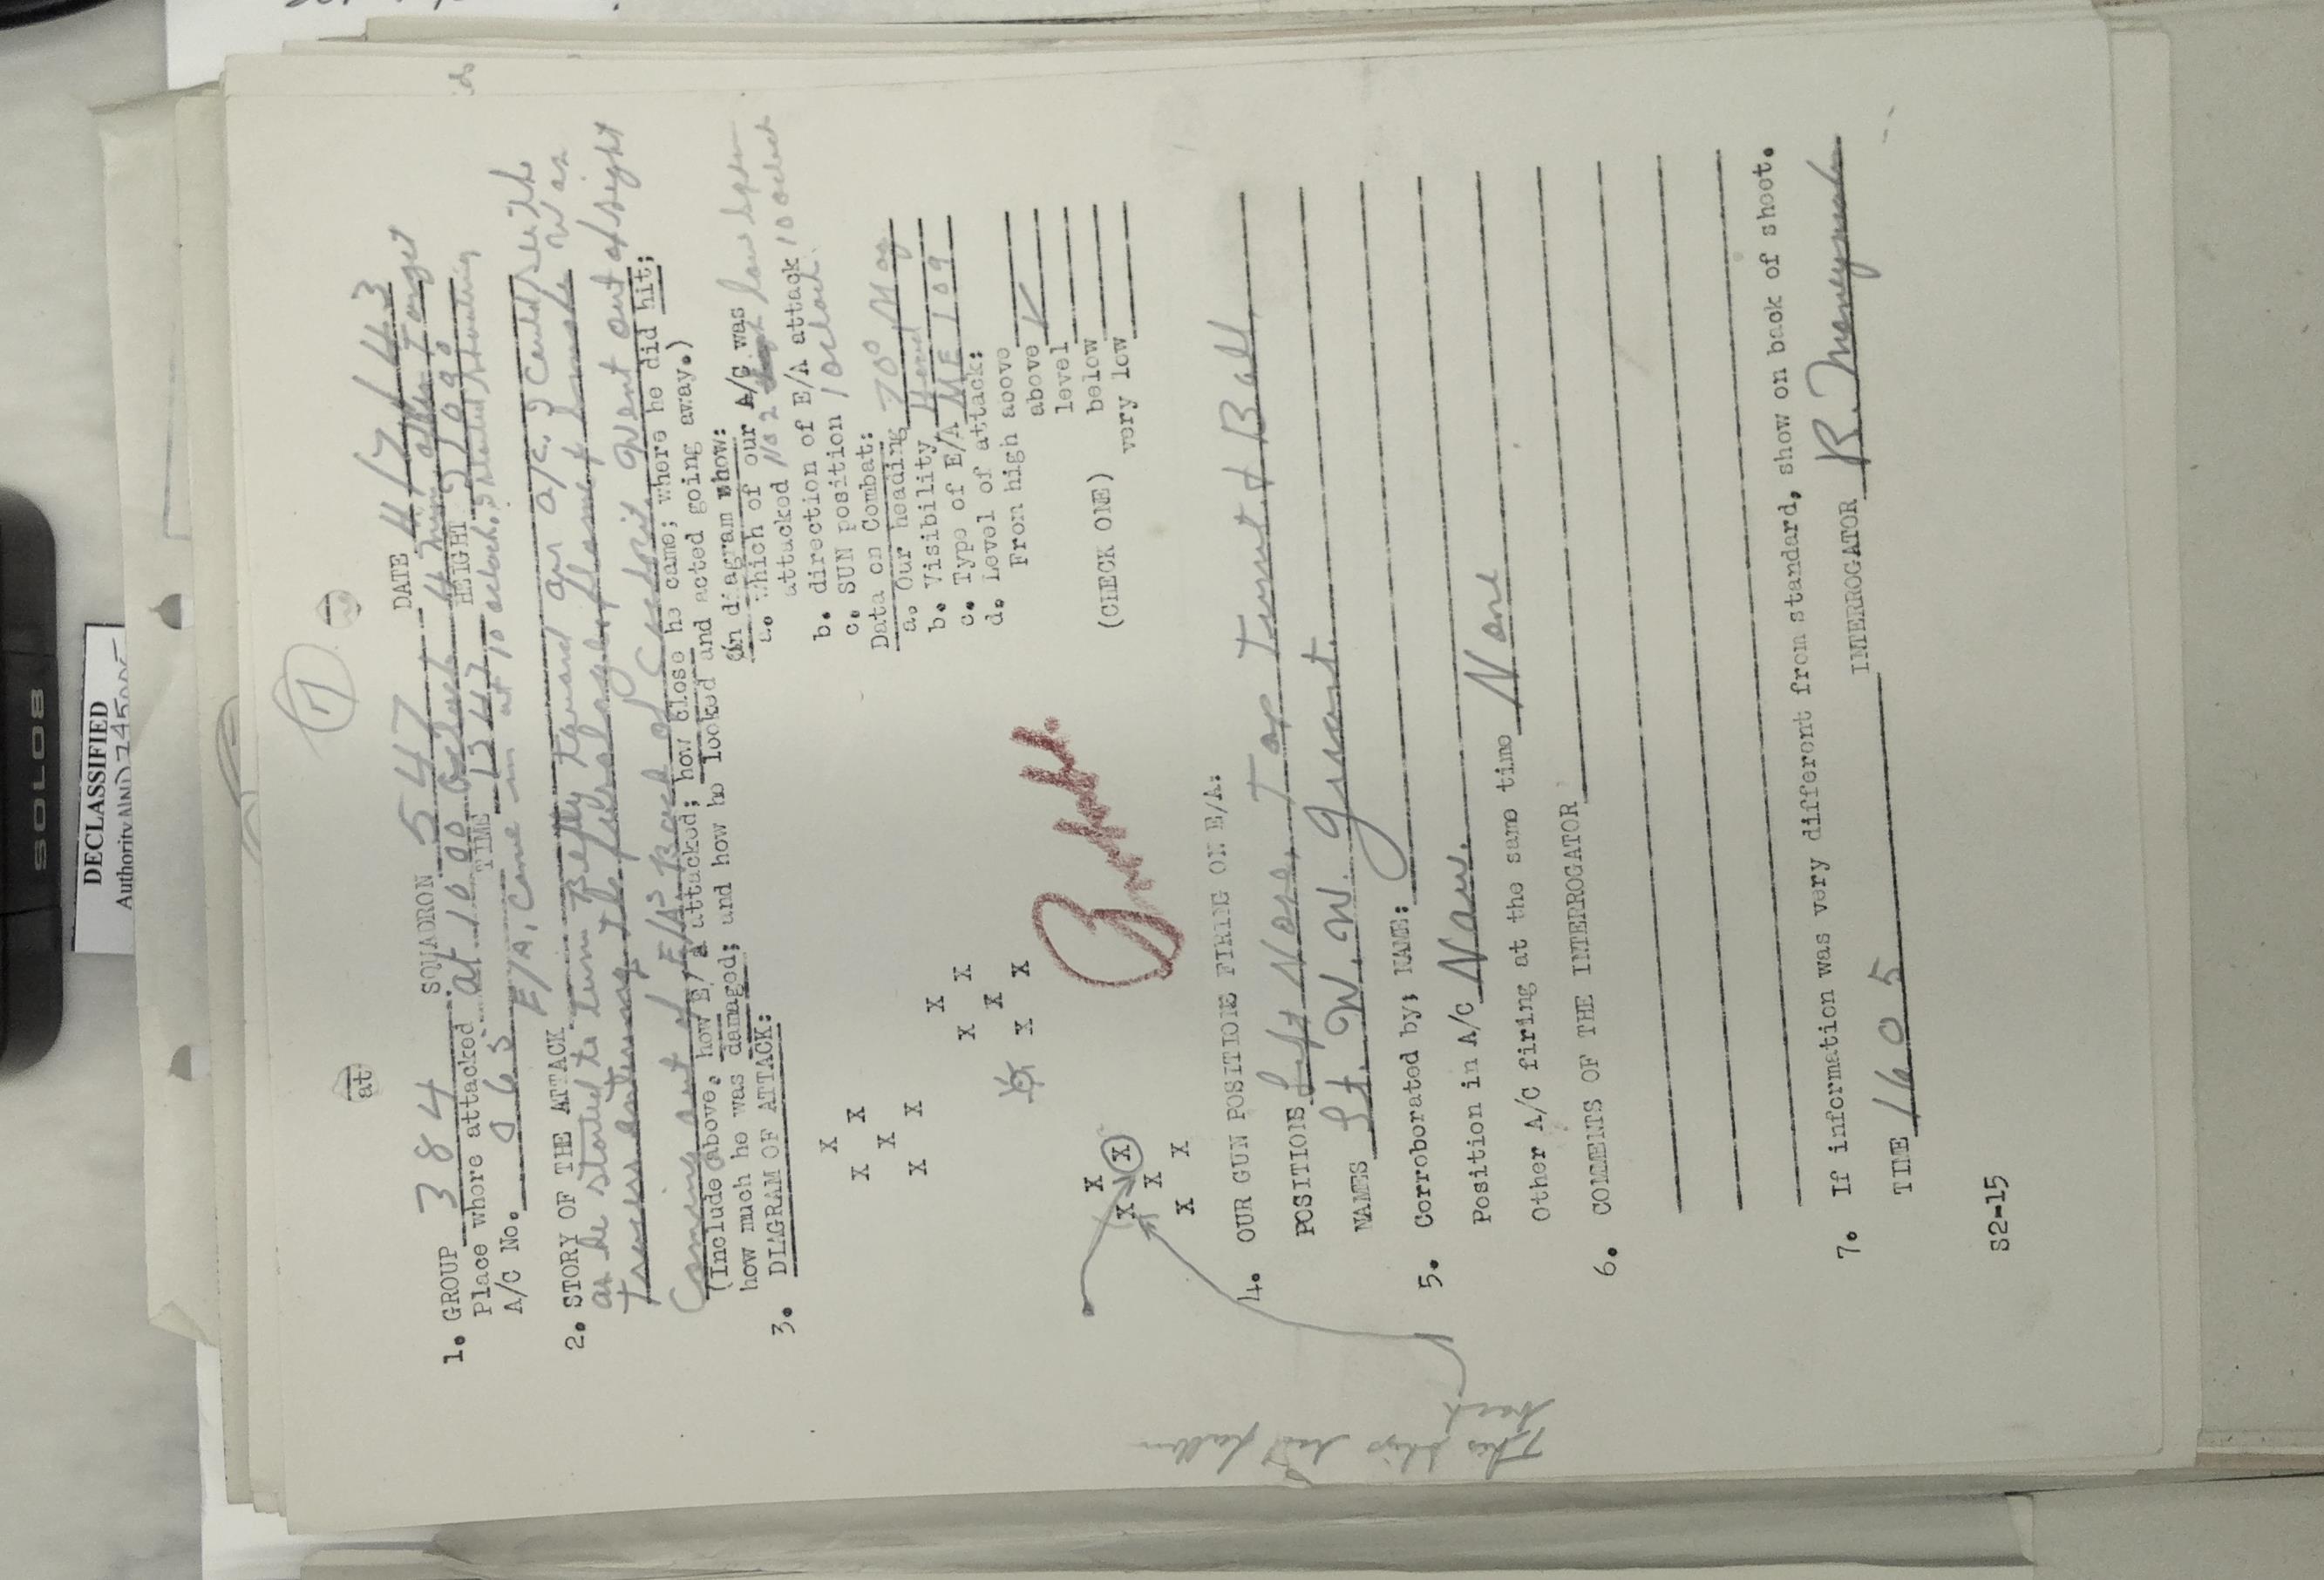 SOLO8
DECLASSIFIED
Authority NND 745005
7
at
1. GROUP 384 SQUADRON 547 DATE 4/7/43
Place where attacked at 10 00 oclock 4 min after Target
A/C No. TIME 1347 HEIGHT
2. STORY OF THE ATTACK E/A came in at 10 oclock, I started shooting
as he started to turn Belly toward our a/c. I could see the
Tracers entering the fuselage, flame & smoke was
Coming out of E/A. Back of Cockpit went out of sight
(Include above, how E/A attacked; how close he came; where he did hit;
how much he was damaged; and how he looked and acted going away.)
3. DIAGRAM OF ATTACK:
On diagram show:
a. which of our A/C was
attacked No 2 low Sqdn
b. direction of E/A attack 10 oclock
c. SUN position 1 oclock
Data on Combat:
a. Our heading 70° Mag
b. Visibility Good
c. Type of E/A ME 109
d. Level of attack:
From high above
above
level
below
very low
(CHECK ONE)
X X X X X X
X X X X X X
X X X X X X
This ship had fallen back
4. OUR GUN POSITIONS FIRING ON E/A:
POSITIONS Left Nose, Top Turret & Ball
NAMES Lt. W. W.
5. Corroborated by; NAME:
Position in A/C Nav.
Other A/C firing at the same time None
6. COMMENTS OF THE INTERROGATOR
7. If information was very different from standard, show on back of shoot.
TIME 1605 INTERROGATOR R.
S2-15